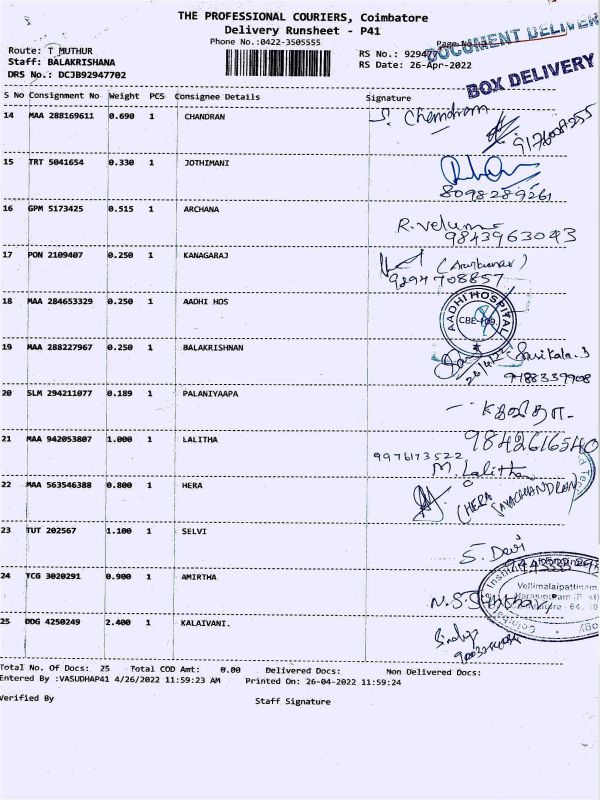 THE PROFESSIONAL COURIERS, Coimbatore
Delivery Runsheet - P41
Phone No.:0422-3505555
DOCUMENT DELIVER
BOX DELIVERY
Route: T MUTHUR
Staff: BALAKRISHANA
DRS No.: DCJB92947702
RS No.: 92947
RS Date: 26-Apr-2022
S No Consignment No Weight PCS Consignee Details Signature
14 MAA 288169611 0.690 1 CHANDRAN S. Chandram
15 TRT 5041654 0.330 1 JOTHIMANI
8098289261
16 GPM 5173425 0.515 1 ARCHANA R. Velum
9843963043
17 PON 2109407 0.250 1 KANAGARAJ
9294708857
18 MAA 284653329 0.250 1 AADHI HOS
AADHI HOSPITAL
19 MAA 288227967 0.250 1 BALAKRISHNAN Srikala.S
9188339908
20 SLM 294211077 0.189 1 PALANIYAAPA
9842616540
21 MAA 942053807 1.000 1 LALITHA 9976173522
M. Lalitha
22 MAA 563546388 0.800 1 HERA (HERA
23 TUT 202567 1.100 1 SELVI S. Devi
24 TCG 3020291 0.900 1 AMIRTHA
Vellimalaipattinam
25 DDG 4250249 2.400 1 KALAIVANI.
Total No. Of Docs: 25 Total COD Amt: 0.00 Delivered Docs: Non Delivered Docs:
Entered By :VASUDHAP41 4/26/2022 11:59:23 AM Printed On: 26-04-2022 11:59:24
Verified By Staff Signature